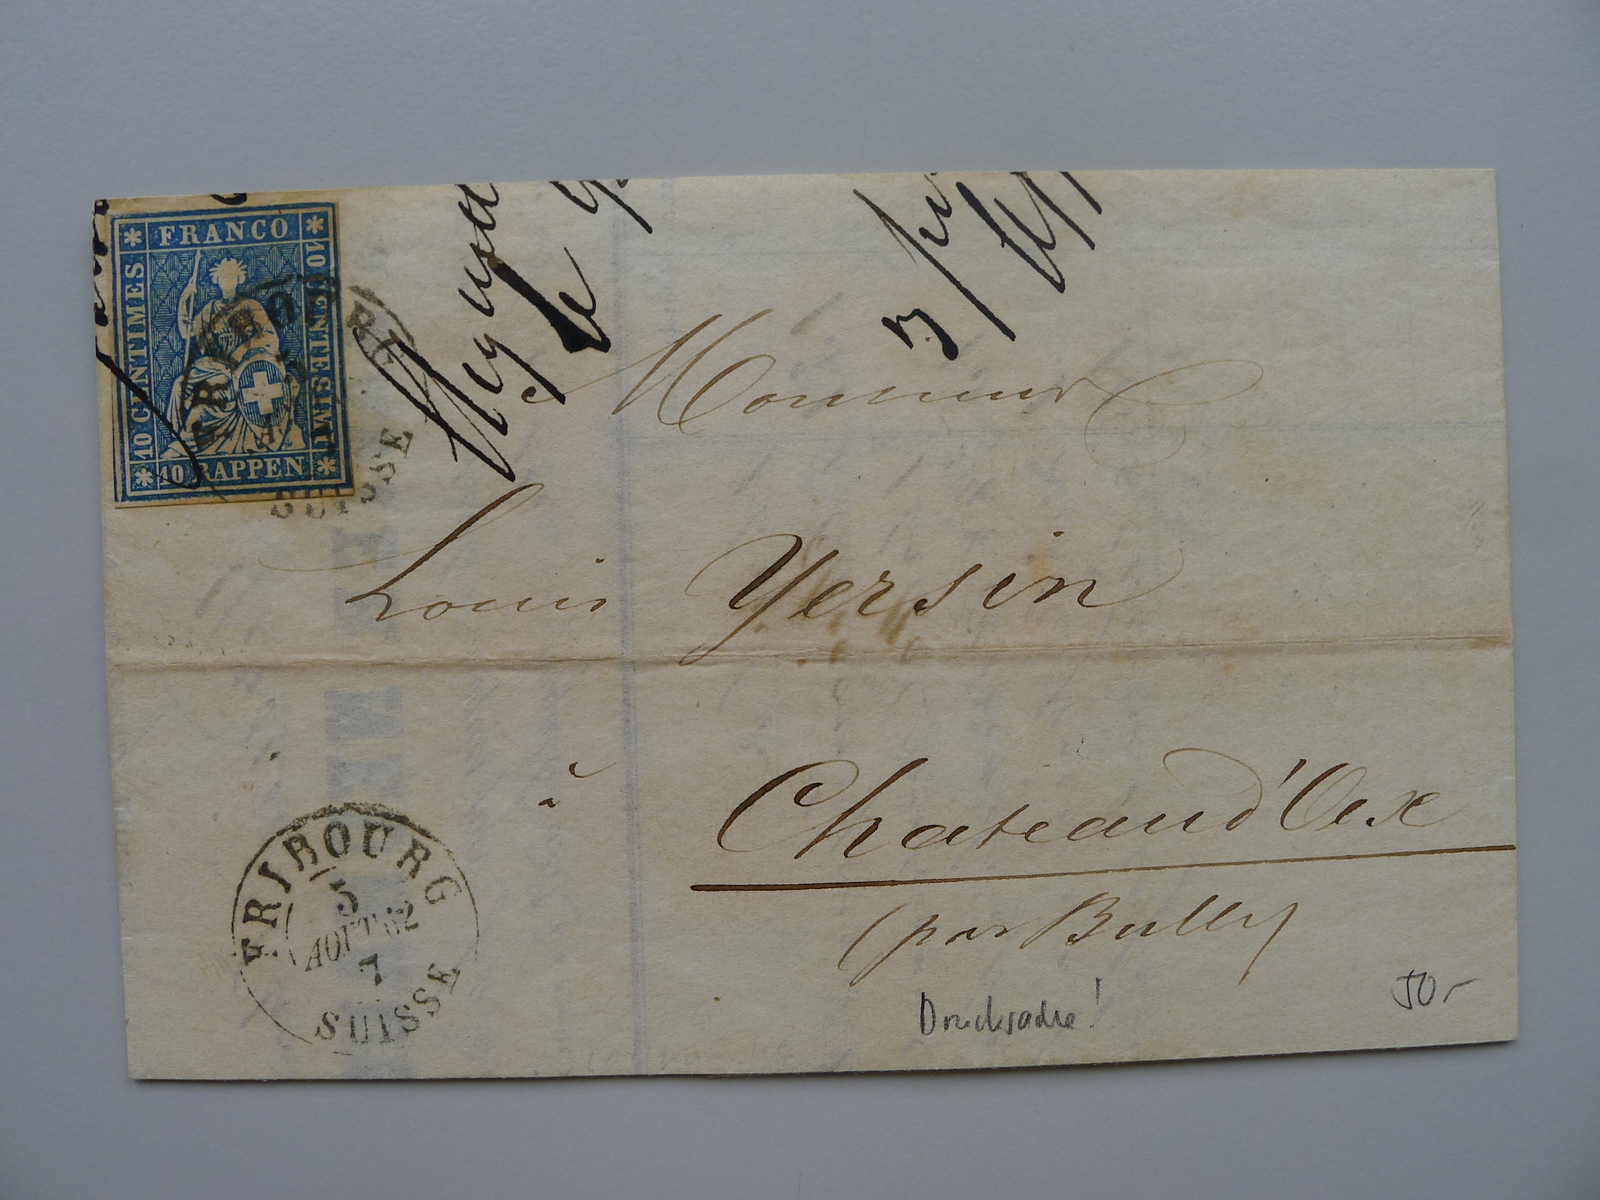 FRANCO
10 CENTIMES
10 CENTESIMI
10 RAPPEN
FRIBOURG
SUISSE
Monsieur
Louis Yersin
à
Chateaud'Oex
(par Bulle)
FRIBOURG
5
AOUT 62
7
SUISSE
Drucksache!
50-